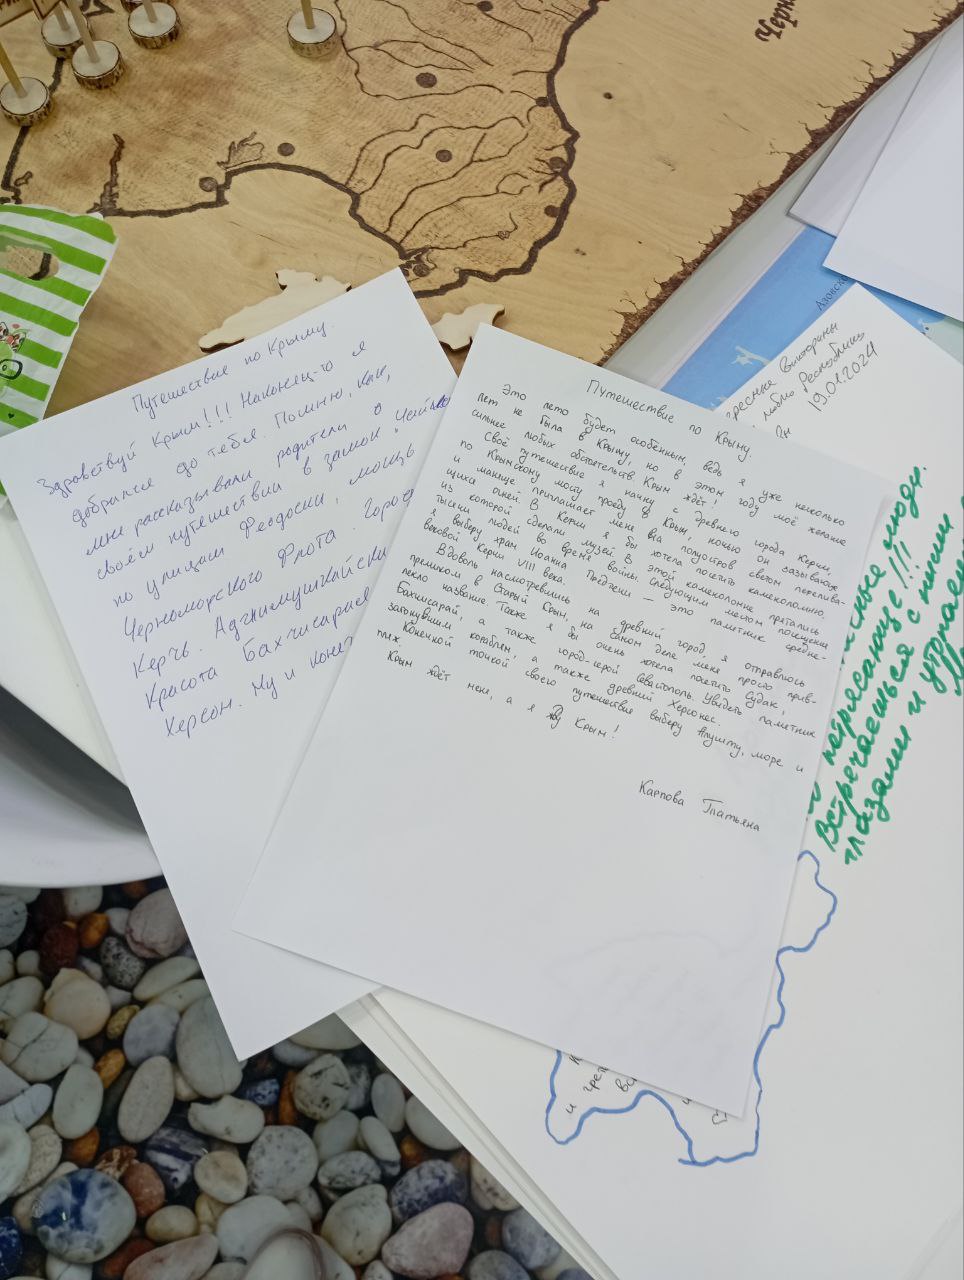 Черн
Азовск
Путешествие по Крыму.
Здравствуй Крым!!! Наконец-то я
добрался до тебя. Помню, как,
мне рассказывали родители о
своём путешествии в замок "Чайк
по улицам Феодосии, мощь
Черноморского Флота Горо
Керчь. Аджимушкайски
Красота Бахчисарае
Херсон. Ну и конеч
Путешествие по Крыму.
Это лето будет особенным, ведь я уже несколько
лет не была в Крыму, но в этом году моё желание
сильнее любых обстоятельств. Крым ждёт!
Своё путешествие я начну с древнего города Керчи,
по Крымскому мосту проеду в Крым, ночью он зазывающе
и маняще приглашает меня на полуостров светом перелива-
щихся огней. В Керчи я бы хотела посетить каменоломню,
из которой сделали музей. В этой каменоломне прятались
тысячи людей во время войны. Следующим местом посещения
я выберу храм Иоанна Предтечи — это памятник средне-
вековой Керчи VIII века.
Вдоволь насмотревшись на древний город, я отправлюсь
прямиком в Старый Крым, на самом деле меня просто прив-
лекло название. Также я бы очень хотела посетить Судак,
Бахчисарай, а также город-герой Севастополь. Увидеть памятник
затонувшим кораблям, а также древний Херсонес.
Конечной точкой своего путешествия выберу Алушту, море и
пляж.
Крым ждёт меня, а я жду Крым!
Карпова Татьяна
Викторины
люблю Республики
19.01.2024
потрясающе!!!
люди.
Встречаешься с ними
глазами и утопаешь
и